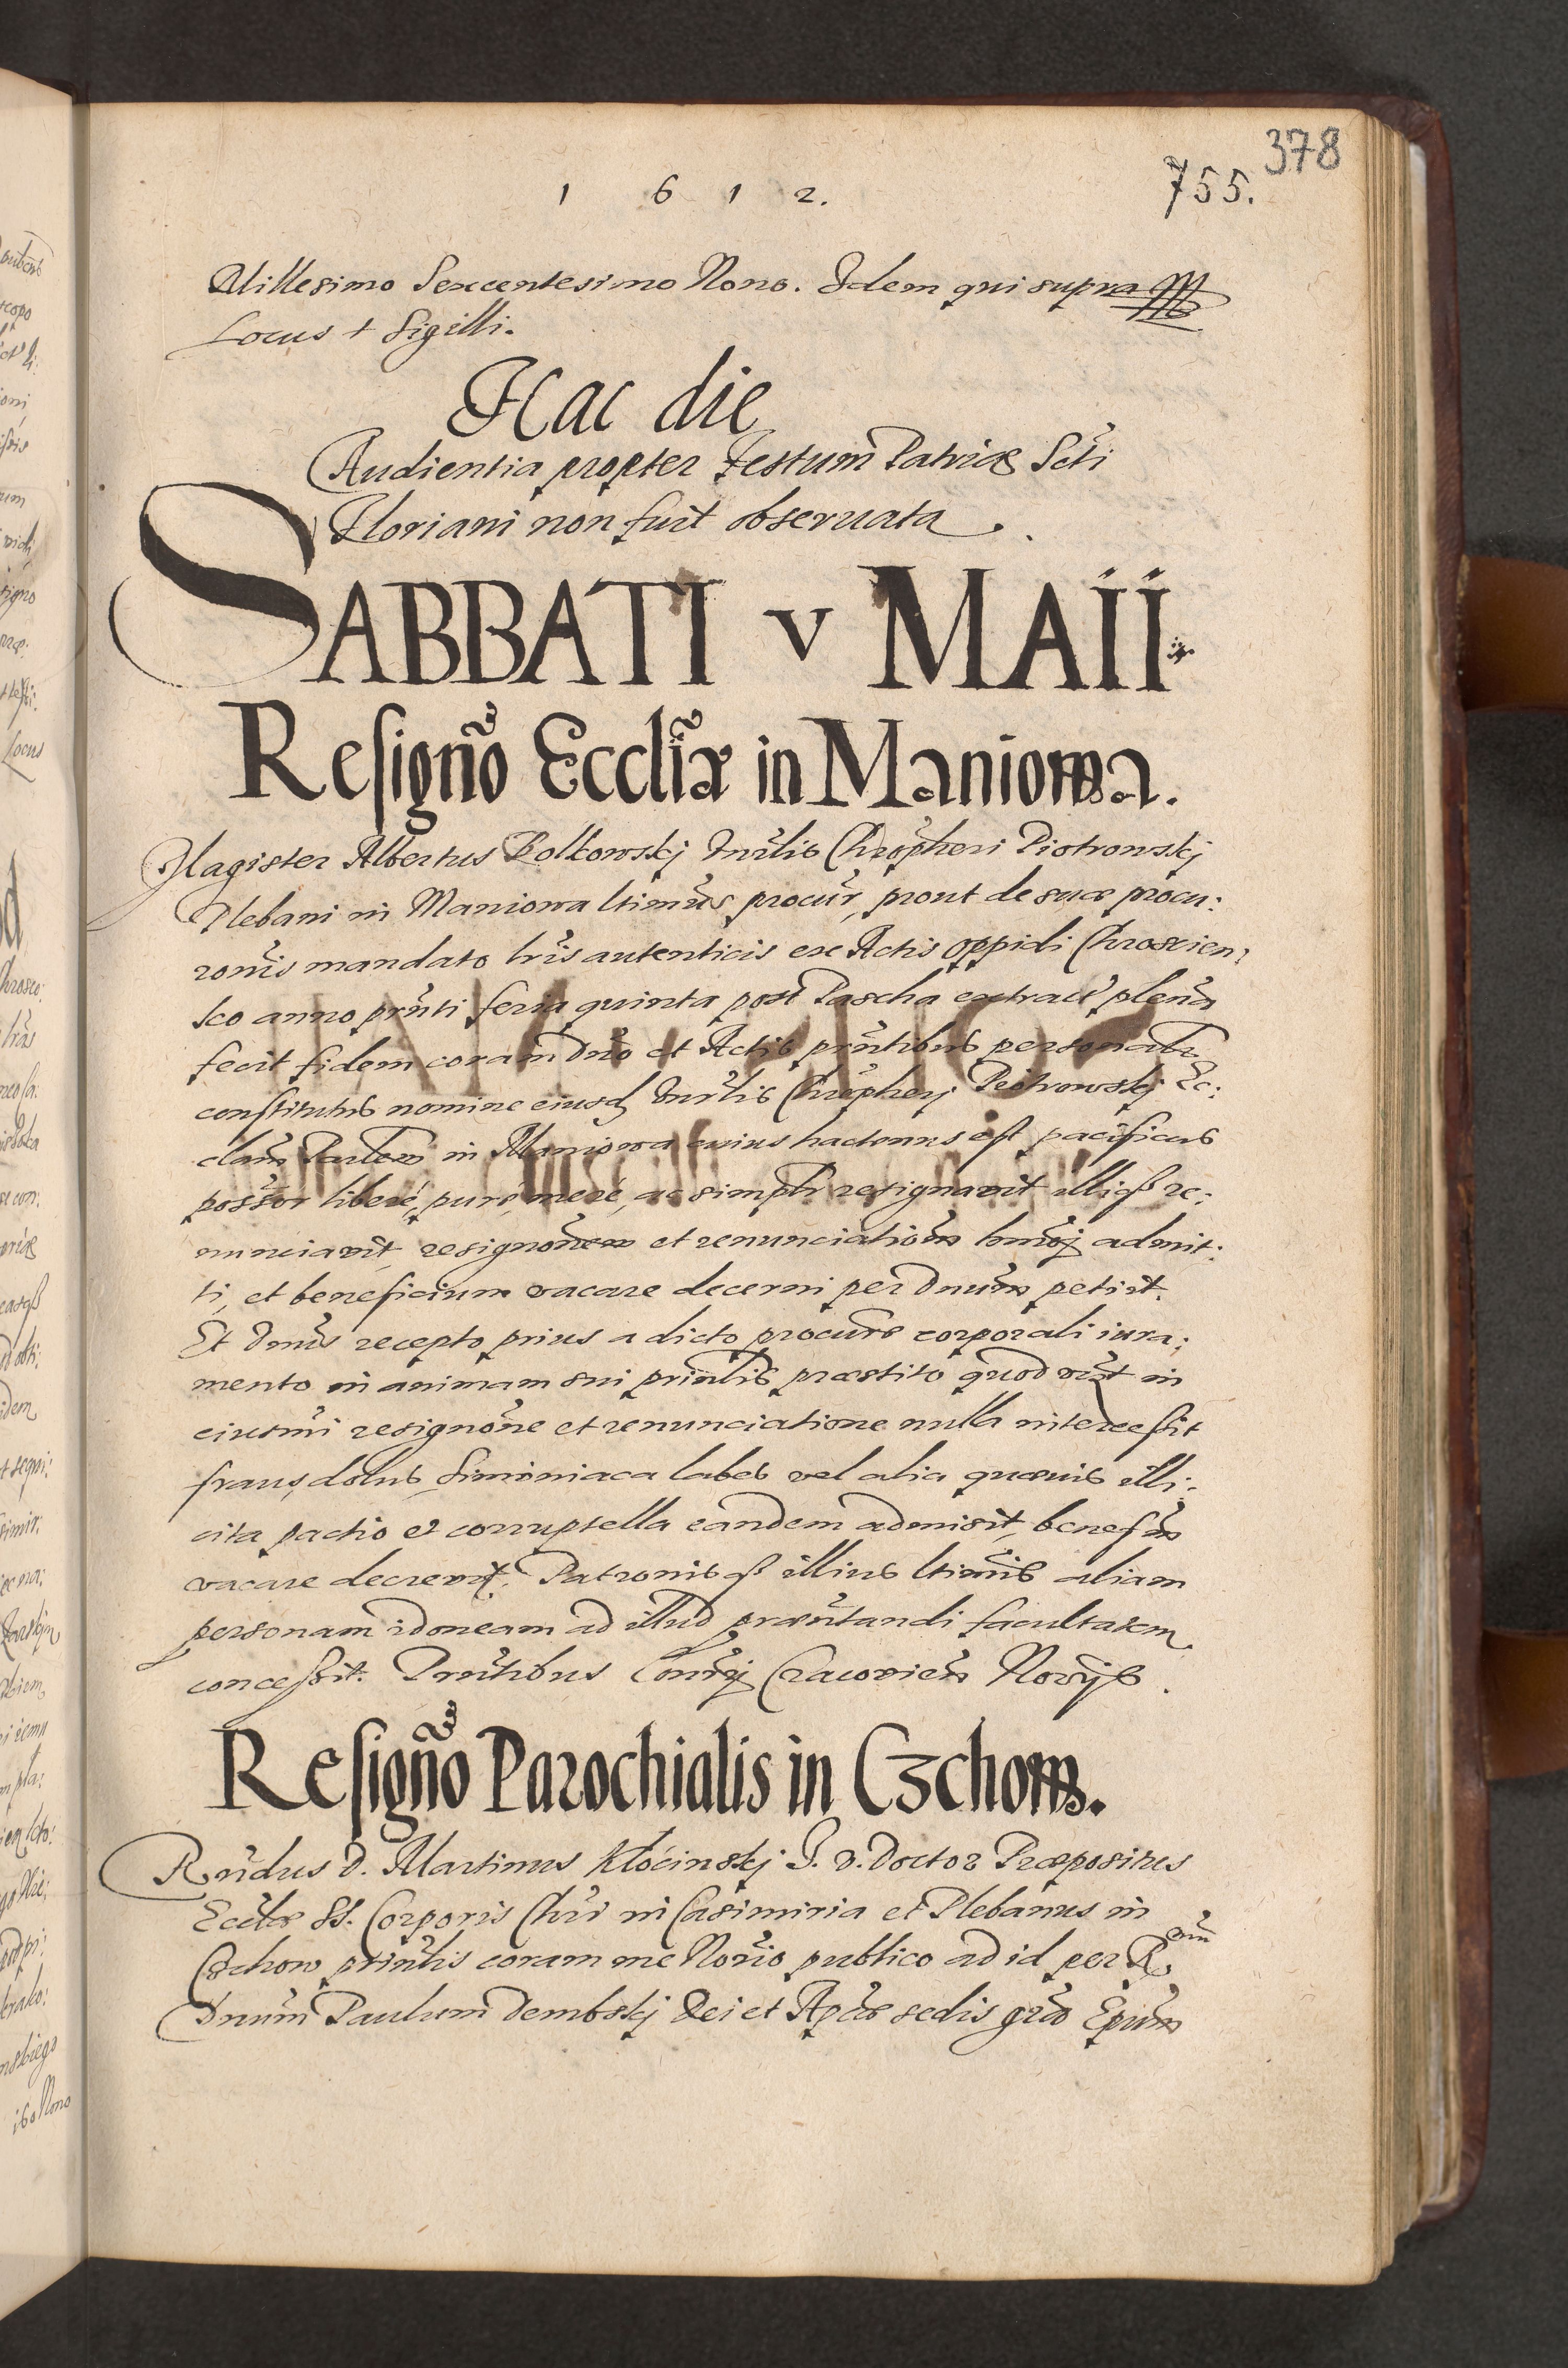 378
1 6 1 2.
755.
Millesimo Sexcentesimo Nono. Idem qui supra
Locus + Sigilli.
Hac die
Audientia propter Festum Patriæ Scti
Floriani non fuit obseruata.
SABBATI v MAII
Resigno Eccliæ in Maniowa.
Magister Albertus Polkowskj Christopheri Piotrowskj
Plebani in Maniowa ltimus procur, prout de suæ procu:
ronis mandato lris autenticis ex Actis oppidi
anno prnti feria quinta post Pascha extract plenam
fecit fidem coram Dno et Actis prntibus personalr
constitutus nomine eiusd Piotrowskj Ec:
clam in Maniowa cuius hactenus est pacificus
possor liberé, puré, meré, ac simplr resignauit illiqß re:
nunciauit, resignonem et renunciationem hmoj admit:
ti, et beneficium vacare decerni per Dnum petiit.
Et Dnus recepto prius a dicto procure corporali iura:
mento in animam sui prinlis præstito quod in
eiusmi resignone et renunciatione nulla intercessit
fraus, dolus, Simoniaca labes vel alia quæuis illi:
cita pactio et corruptella eandem admisit, benefm
vacare decreuit, Patronisqß illius ltimis aliam
personam idoneam ad illud præsntandi facultatem
concessit. Prntibus Cracovien Norijs.
Resigno Parochialis in Czchow.
Rndus D. Martinus Kłócinskj J. v. Doctor Præpositus
Ecclæ SS. Corporis Chri in Casimiria et Plebanus in
Czchow prinlis coram me Norio publico ad id per R mm
Dnum Paulum Dembskj Dei et Aplicæ sedis gra Epum